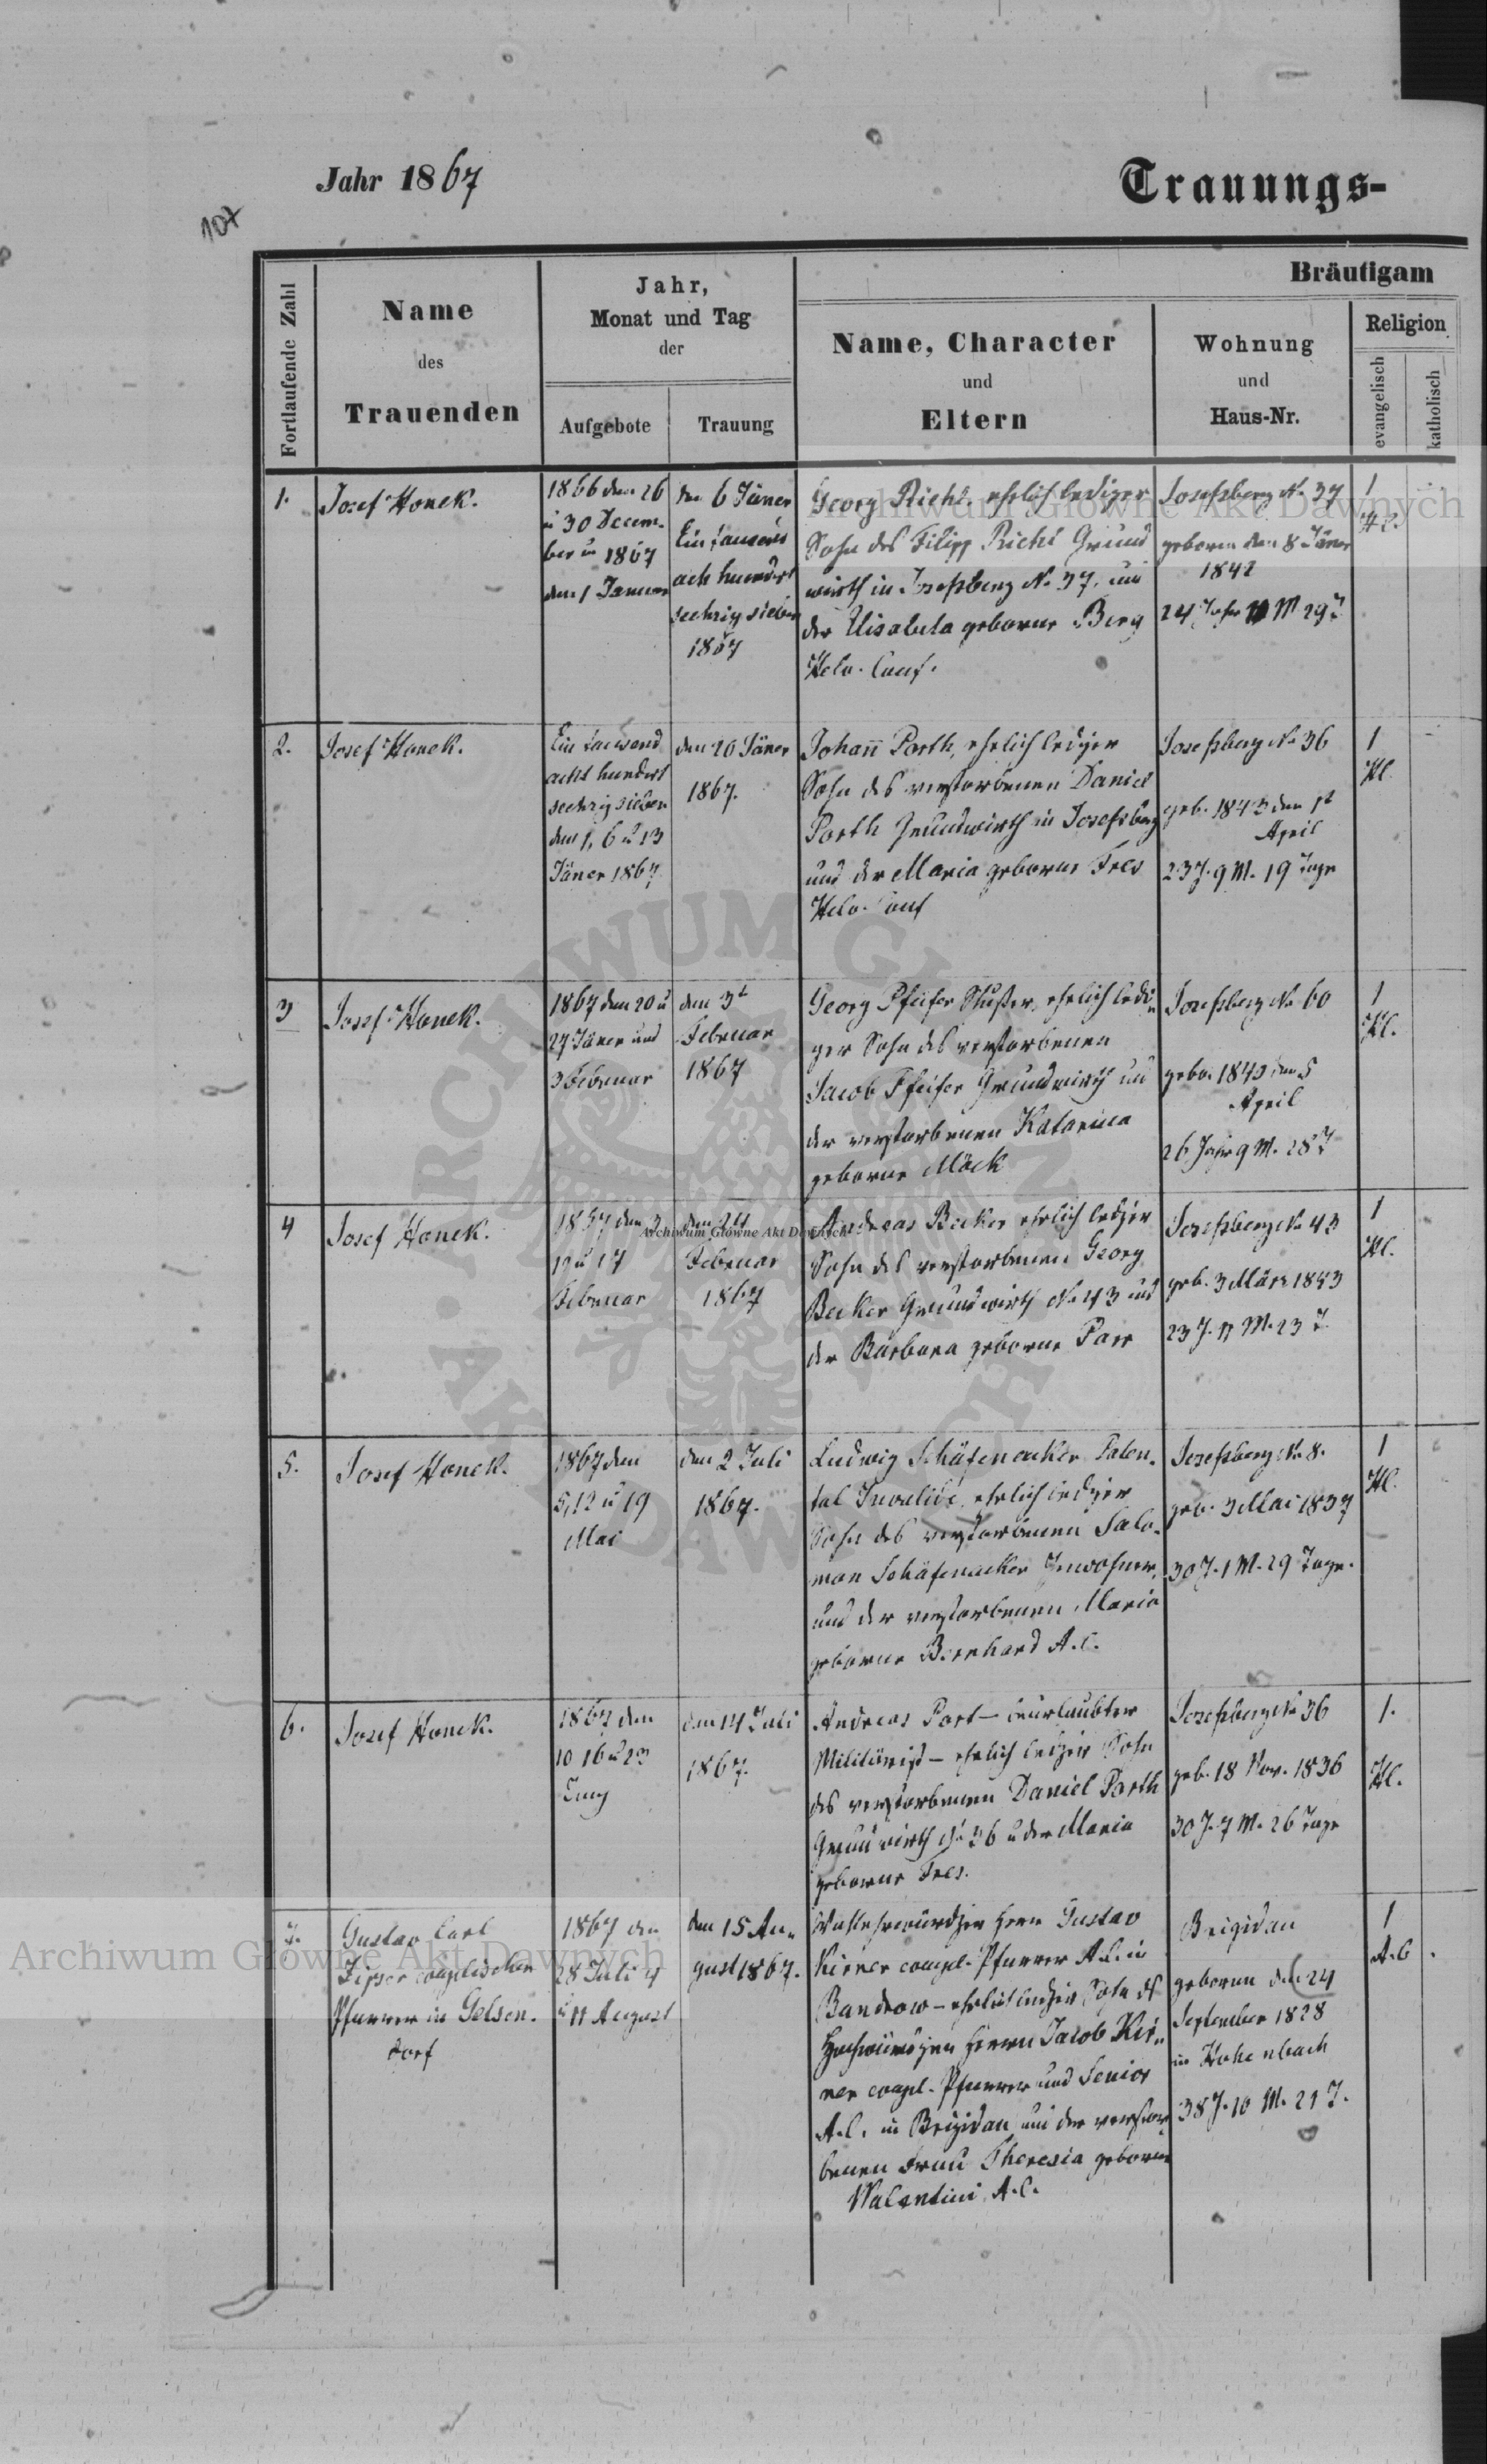 Jahr 1867
Trauungs-
107
Fortlaufende Zahl
Name
des
Trauenden
Jahr,
Monat und Tag
der
Aufgebote
Trauung
Bräutigam
Name, Character
und
Eltern
Wohnung
und
Haus-Nr.
Religion
evangelisch
katholisch
1.
Josef Honek.
1866 den 26
u 30 Decem-
ber u 1867
den 1 Januar
den 6 Jäner
Ein tausend
acht hundert
sechzig sieben
1867
Georg Riehl ehelich lediger
Sohn des Filipp Riehl Grund
wirth in Josefsberg No 37, und
der Elisabeta geborne Berg
Helv. Conf.
Josefsberg No 37
geboren den 8 Jäner
1842
24 Jahr 11 M 29 T
1
H.C.
2.
Josef Honek.
Ein tausend
acht hundert
sechzig sieben
den 1, 6 u 13
Jäner 1867
den 20 Jäner
1867.
Johann Porth, ehelich lediger
Sohn des verstorbenen Daniel
Porth Grundwirth in Josefsberg
und der Maria geborne Fres
Helv. Conf
Josefsberg No 36
geb. 1843 den 1t
April
23 J. 9 M. 19 Tage
1
H.C.
3
Josef Honek.
1867 den 20 u
27 Jäner und
3 Februar
den 3t
Februar
1867
Georg Pfeifer ehelich ledi-
ger Sohn des verstorbenen
Jacob Pfeifer Grundwirth und
der verstorbenen Katarina
geborne Möck
Josefsberg No 60
gebo. 1840 den 5
April
26 Jahr 9 M. 28 T
1
H.C.
4
Josef Honek.
1867 den 3
10 u 17
Februar
den 24
Februar
1867
Andreas Becker ehelich lediger
Sohn des verstorbenen Georg
Becker Grundwirth No 43 und
der Barbara geborne Parr
Josefsberg No 43
geb. 3 März 1843
23 J. 11 M. 23 T
1
H.C.
5.
Josef Honek.
1867 den
5, 12 u 19
Mai
den 2 Juli
1867.
Ludwig Schäfenacker Paten-
tal Invalide, ehelich lediger
Sohn des verstorbenen Salo-
mon Schäfenacker Inwohner,
und der verstorbenen Maria
geborne Bernhard A.C.
Josefsberg No 8.
geb. 3 Mai 1837
30 J. 1 M. 29 Tage.
1
H.C.
6.
Josef Honek.
1867 den
10 16 u 23
Juny
den 14 Juli
1867.
Andreas Port – beurlaubter
Militärist – ehelich lediger Sohn
des verstorbenen Daniel Porth
Grundwirth No 36 u der Maria
geborne Fres.
Josefsberg No 36
geb. 18 Nov. 1836
30 J. 7 M. 26 Tage
1.
H.C.
7.
Gustav Carl
Zipser evangelischer
Pfarrer in Gelsen-
dorf
1867 den
28 Juli 4
u 11 August
den 15 Au-
gust 1867.
Wohlehrwürdger Herr Gustav
Kirner evangel. Pfarrer A.C. in
Bandrow – ehelich lediger Sohn des
Hochwürdgen Herrn Jacob Kir-
ner evangel. Pfarrer und Senior
A.C. in Brigidau und der verstor-
benen Frau Theresia geborne
Walentini A.C.
Brigidau
geboren den 24
September 1828
in Hohenbach
38 J. 10 M. 21 T.
1
A.C.
Archiwum Główne Akt Dawnych
Archiwum Główne Akt Dawnych
Archiwum Główne Akt Dawnych
ARCHIWUM GŁÓWNE AKT DAWNYCH